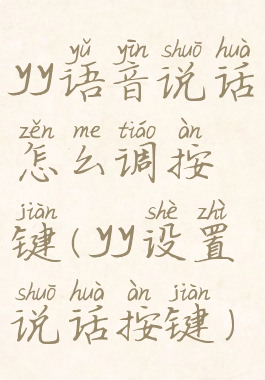 yǔ yīn shuō huà
yy语音说话
zěn me tiáo àn
怎么调按
jiàn shè zhì
键(yy设置
shuō huà àn jiàn
说话按键)